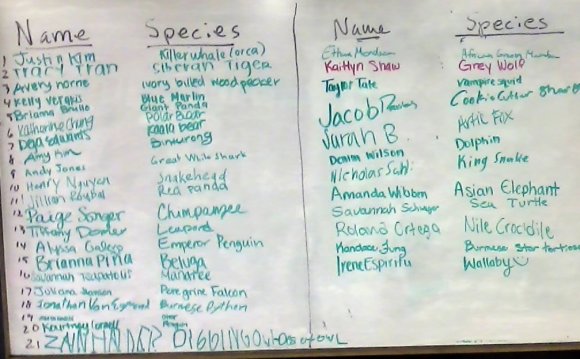 Name Species
1 Justin Kim Killer whale (orca)
2 Tracy Tran Siberian Tiger
3 Avery horne Ivory billed woodpecker
4 Kelly Vergus Blue Marlin
5 Brianna Giant Panda
6 Katharine Chung Polar Bear
7 Deja Edwards Koala bear
8 Amy Kim Binturong
9 Andy Jones Great White Shark
10 Henry Nguyen Snakehead
11 Jillian Red Panda
12 Paige Songer Chimpanzee
13 Tiffany Leopard
14 Alyssa Gallego Emperor Penguin
15 Brianna Piña Beluga
16 Savannah Manatee
17 Juliana Peregrine Falcon
18 Jonathan Burmese Python
19
20 Kourtney Penguin
21 OWL
Name Species
Ethan
Kaitlyn Shaw Grey Wolf
Taylor Tate vampire squid
Jacob Cookie Cutter Shark
Sarah B. Artic Fox
Denim Wilson Dolphin
Nicholas King Snake
Amanda Wibben Asian Elephant
Savannah Sea Turtle
Roland Ortega Nile Crocidile
Kandace Jung Burmese Star tortoise
Irene Espiritu Wallaby